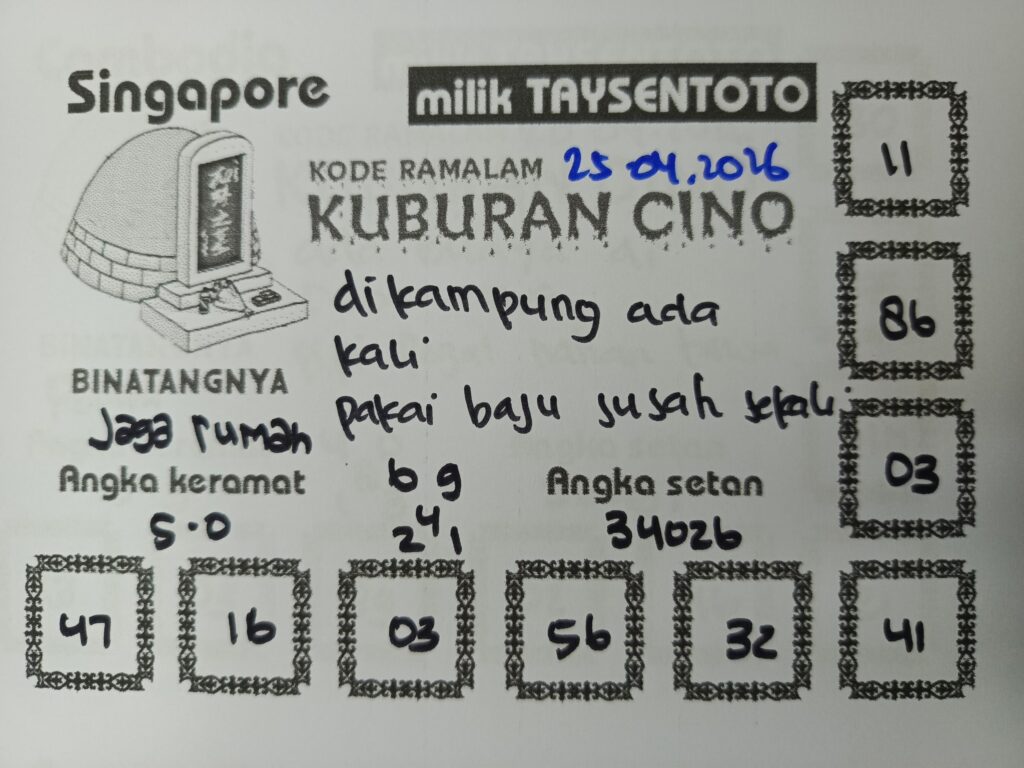 Singapore
milik TAYSENTOTO
KODE RAMALAM 25 04.2026
KUBURAN CINO
11
dikampung ada
kali
86
pakai baju susah sekali
BINATANGNYA
Jaga rumah
03
Angka keramat
5.0
6 9
2 4 1
Angka setan
34026
47 16 03 56 32 41